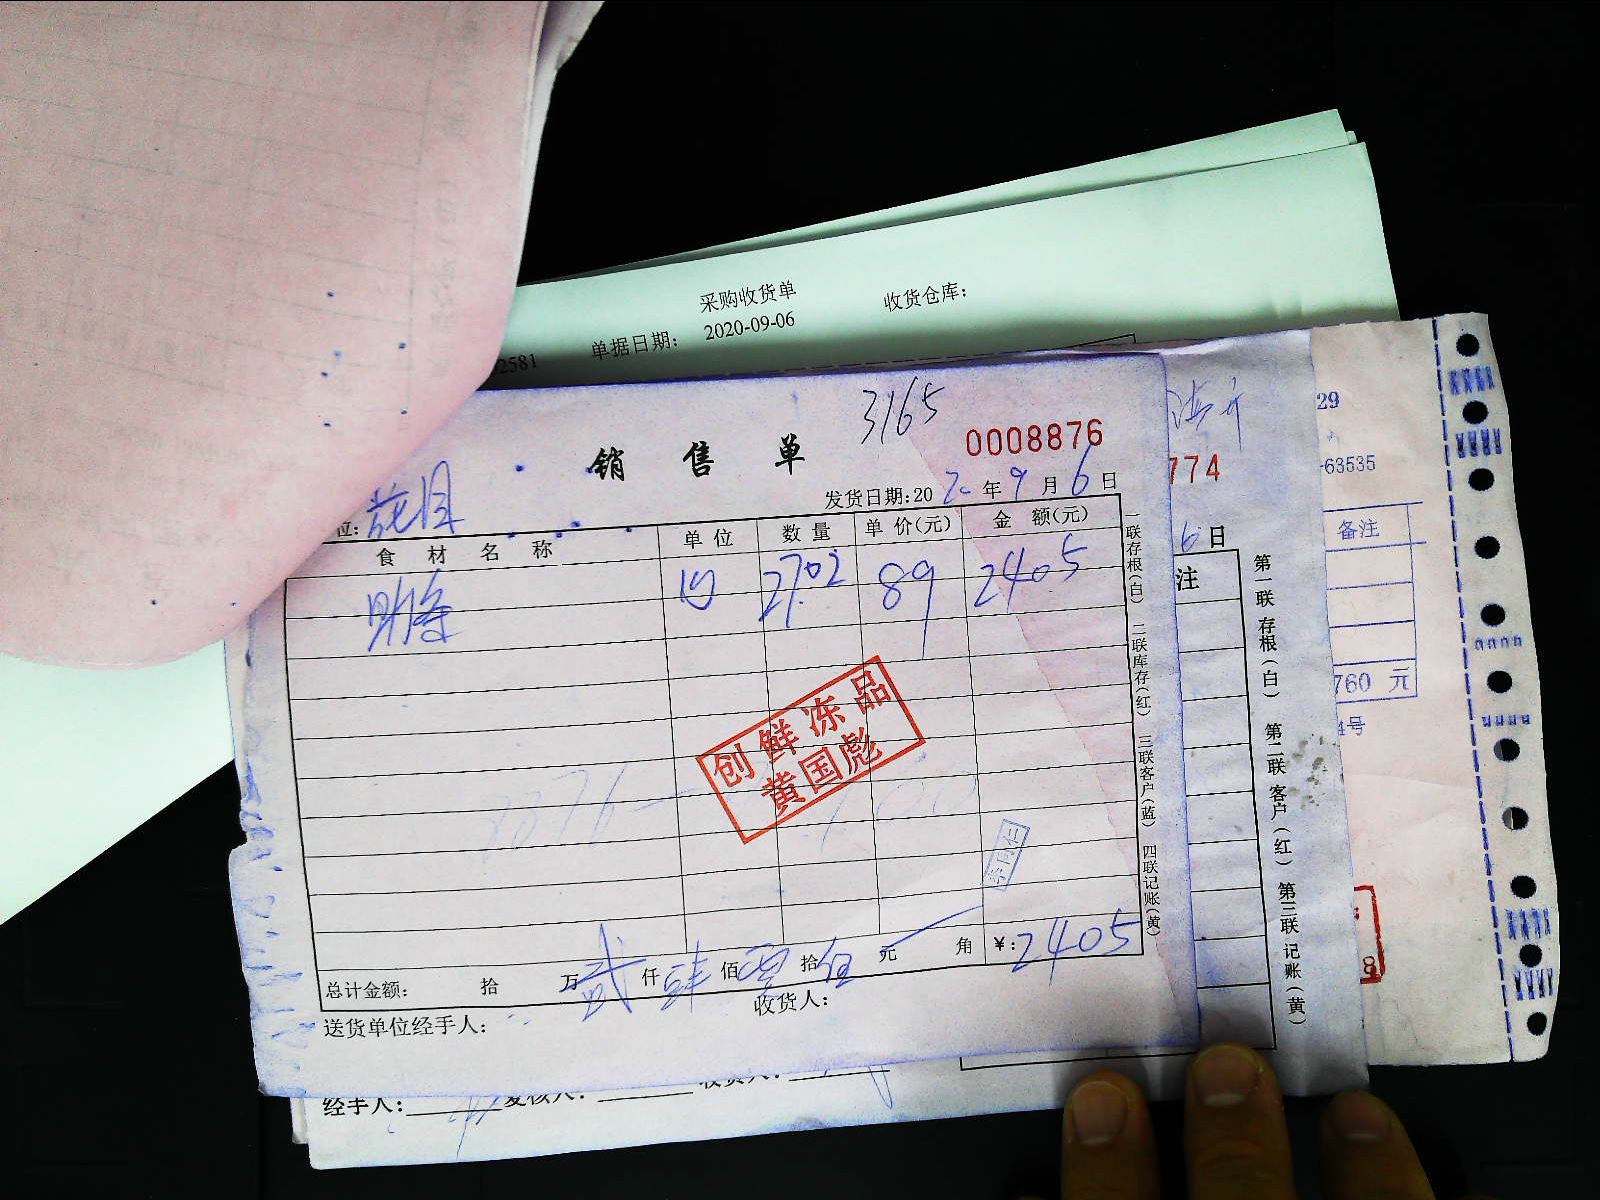 采购收货单
收货仓库：
单据日期： 2020-09-06
02581
3165
销售单
0008876
发货日期:20 20 年 9 月 6 日
位:
食材名称 单位 数量 单价(元) 金额(元)
27.02 89 2405
创鲜冻品
黄国彪
总计金额: 拾 万 贰 仟 肆 佰 零 拾 伍 元 角 ¥:2405
送货单位经手人: 收货人:
一联存根(白) 二联库存(红) 三联客户(蓝) 四联记账(黄)
774
6 日
注
第一联 存根(白) 第二联 客户(红) 第三联 记账(黄)
29
-63535
备注
760 元
号
8
经手人: 复核人: 收货人: